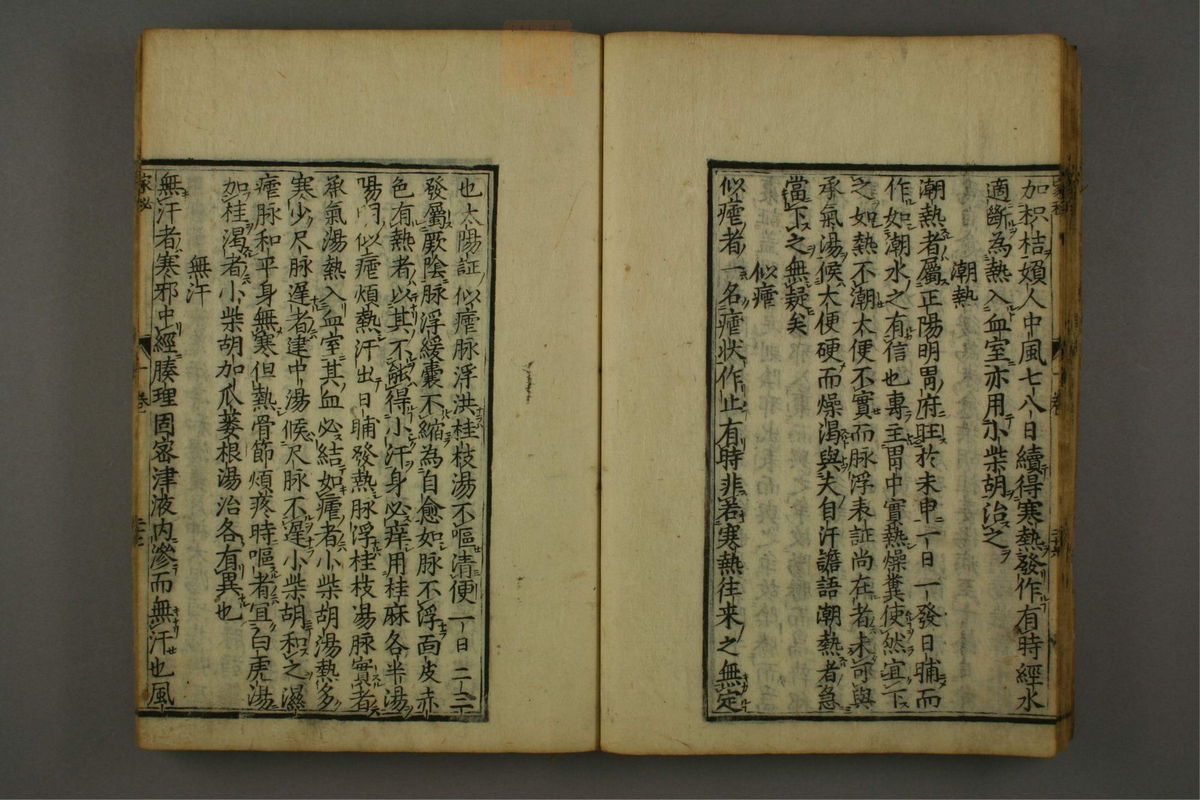 加枳桔婦人中風七八日續得寒熱發作有時經水
適斷為熱入血室亦用小柴胡治之
潮熱
潮熱者屬正陽明胃府旺於未申一日一發日晡而
作如潮水之有信也專主胃中實熱燥糞使然宜下
之如熱不潮大便不實而脉浮表証尚在者未可與
承氣湯候大便硬而燥渴與夫自汗譫語潮熱者急
當下之無疑矣
似瘧
似瘧者一名瘧状作止有時非若寒熱往来之無定
也太陽証似瘧脉浮洪桂枝湯不嘔清便一日二三
發屬厥陰脉浮緩囊不縮為自愈如脉不浮面皮赤
色有熱者以其不能得小汗身必痒用桂麻各半湯
陽明似瘧煩熱汗出日晡發熱脉浮桂枝湯脉實者
承氣湯熱入血室其血必結如瘧者小柴胡湯熱多
寒少尺脉遲者建中湯候尺脉不遲小柴胡和之濕
瘧脉和平身無寒但熱骨節煩疼時嘔者宜白虎湯
加桂渴者小柴胡加瓜蔞根湯治各有異也
無汗
無汗者寒邪中經腠理固密津液内滲而無汗也風